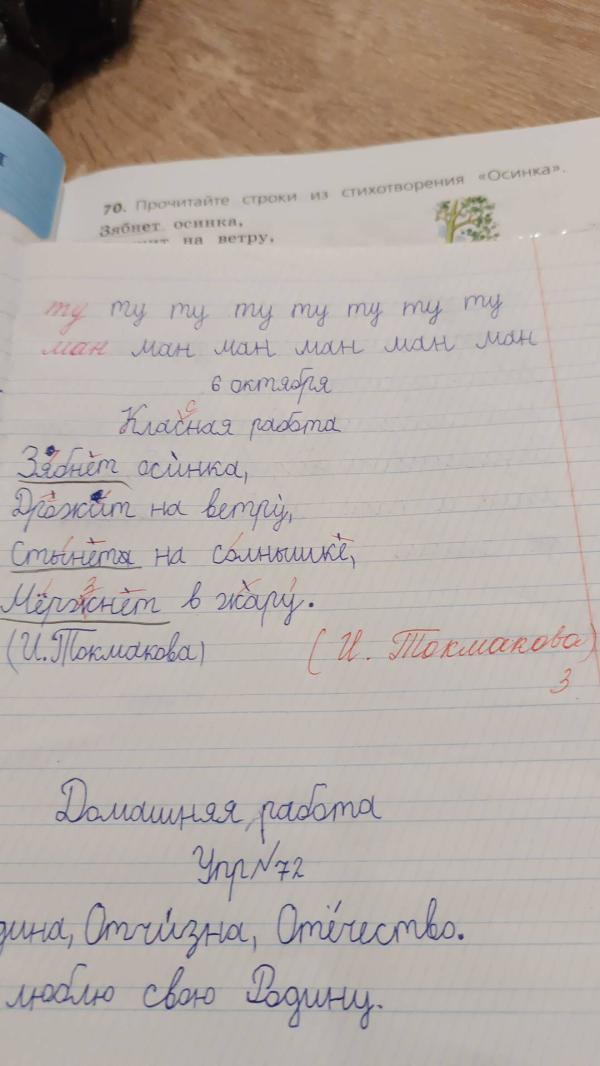 70. Прочитайте строки из стихотворения «Осинка».
Зябнет осинка,
на ветру,
ту ту ту ту ту ту ту ту
ман ман ман ман ман ман
6 октября
с
Класная работа
Зябнет осинка,
Дрожит на ветру,
Стынета на солнышке,
з
Мёржнет в жару.
(И.Токмакова)
(И. Токмакова)
3
Домашняя работа
Упр№72
дина, Отчизна, Отечество.
люблю свою Родину.